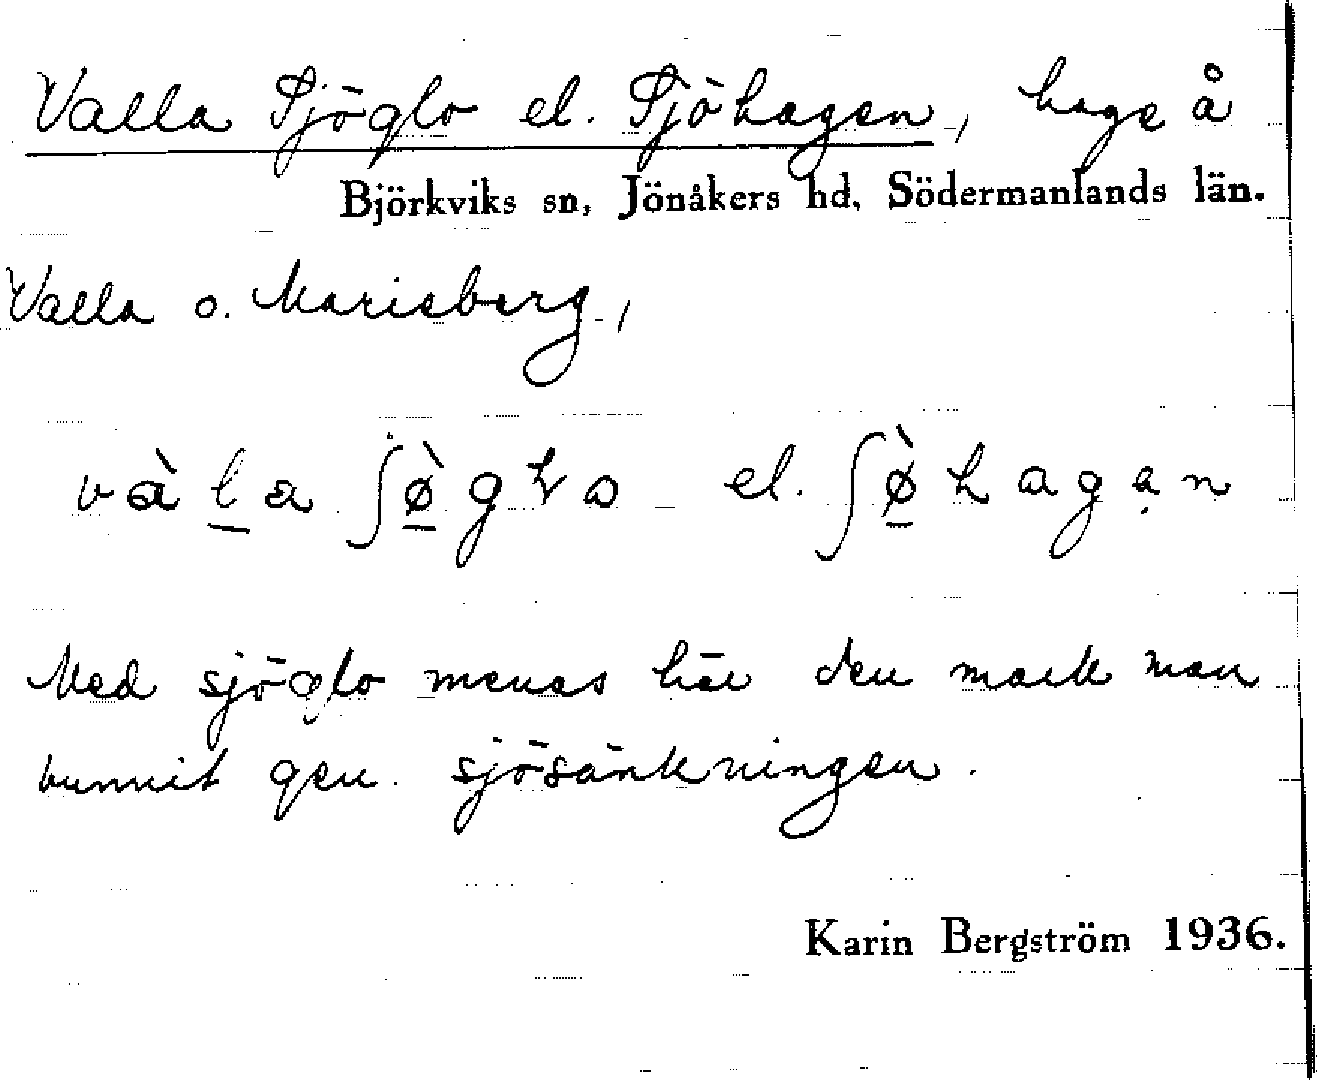 Valla Sjöglo el. Sjöhagen, hage å
Björkviks sn, Jönåkers hd, Södermanlands län.
Valla o. Marieberg,
và l̲a ʃø̲̀gɽo el. ʃø̲̀hagạn
Med sjöglo menas här den mark man
vunnit gen. sjösänkningen.
Karin Bergström 1936.